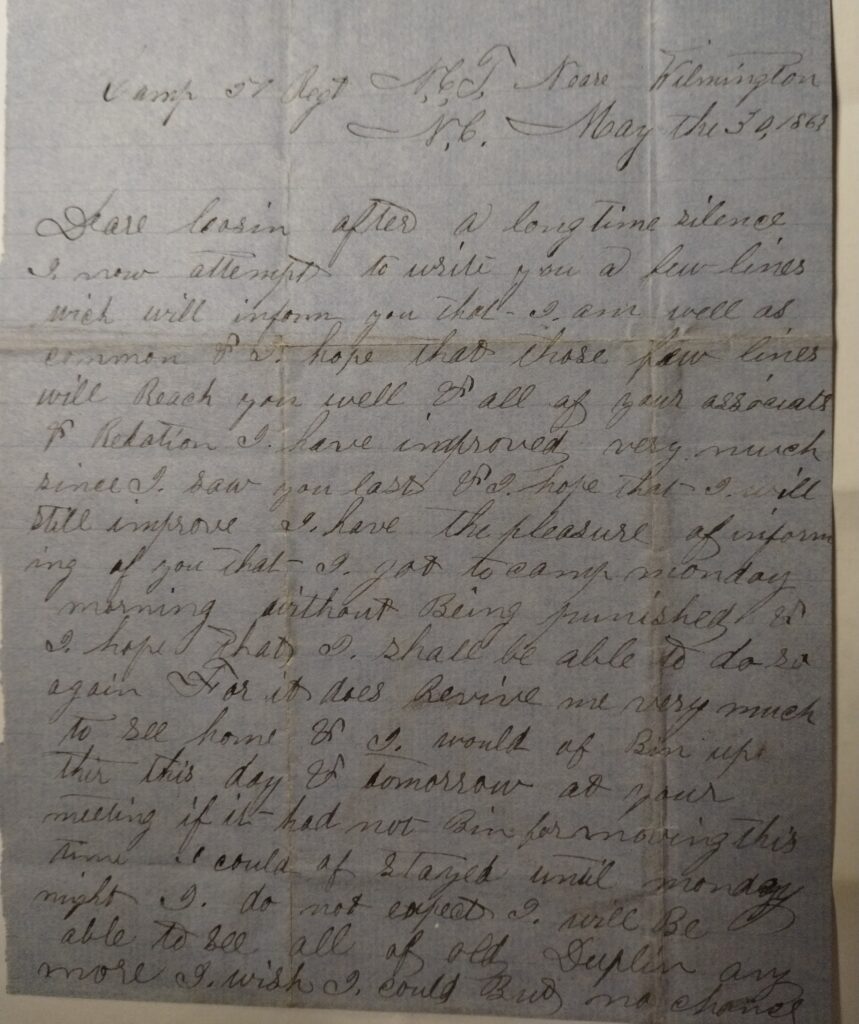 Camp 51 Regt N.C.T. Neare Wilmington
N.C. May the 30, 1863
Deare Coosin after a long time silence
I now attempt to write you a few lines
wich will inform you that I am well as
common & I hope that those few lines
will Reach you well & all of your associats
& Relation I have improved very much
since I saw you last & I hope that I will
still improve I have the pleasure of inform
ing of you that I got to camp monday
morning without Being punished &
I hope that I shall be able to do so
again For it does Revive me very much
to see home & I would of Bin up
thir this day & tomorrow at your
meeting if it had not Bin for moving this
time I could of stayed until monday
night I do not expect I will Be
able to see all of old Duplin any
more I wish I could But no chance